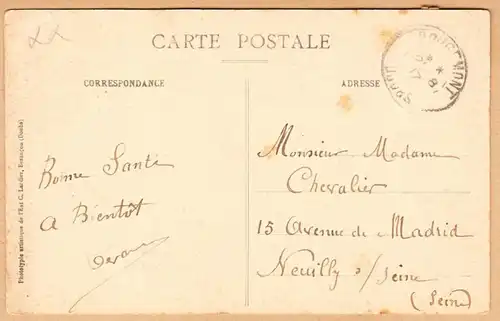 CARTE POSTALE
CORRESPONDANCE
ADRESSE
Bonne Santé
A Bientôt
Monsieur Madame
Chevalier
15 Avenue de Madrid
Neuilly s/ Seine
(Seine)
DOUBS
Phototypie artistique de l'Est C. Lardier, Besançon (Doubs)